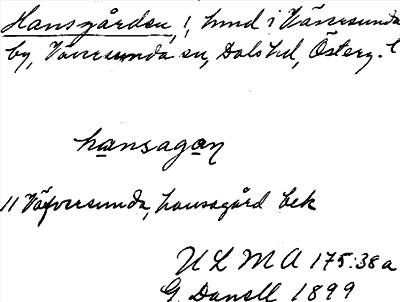 Hansgården, 1, hmd i Väversunda
by, Väversunda sn, Dals hd, Österg. l
hansagan
11 Väfversunda, hansagård bek
ULMA 175:38a
G. Danell 1899